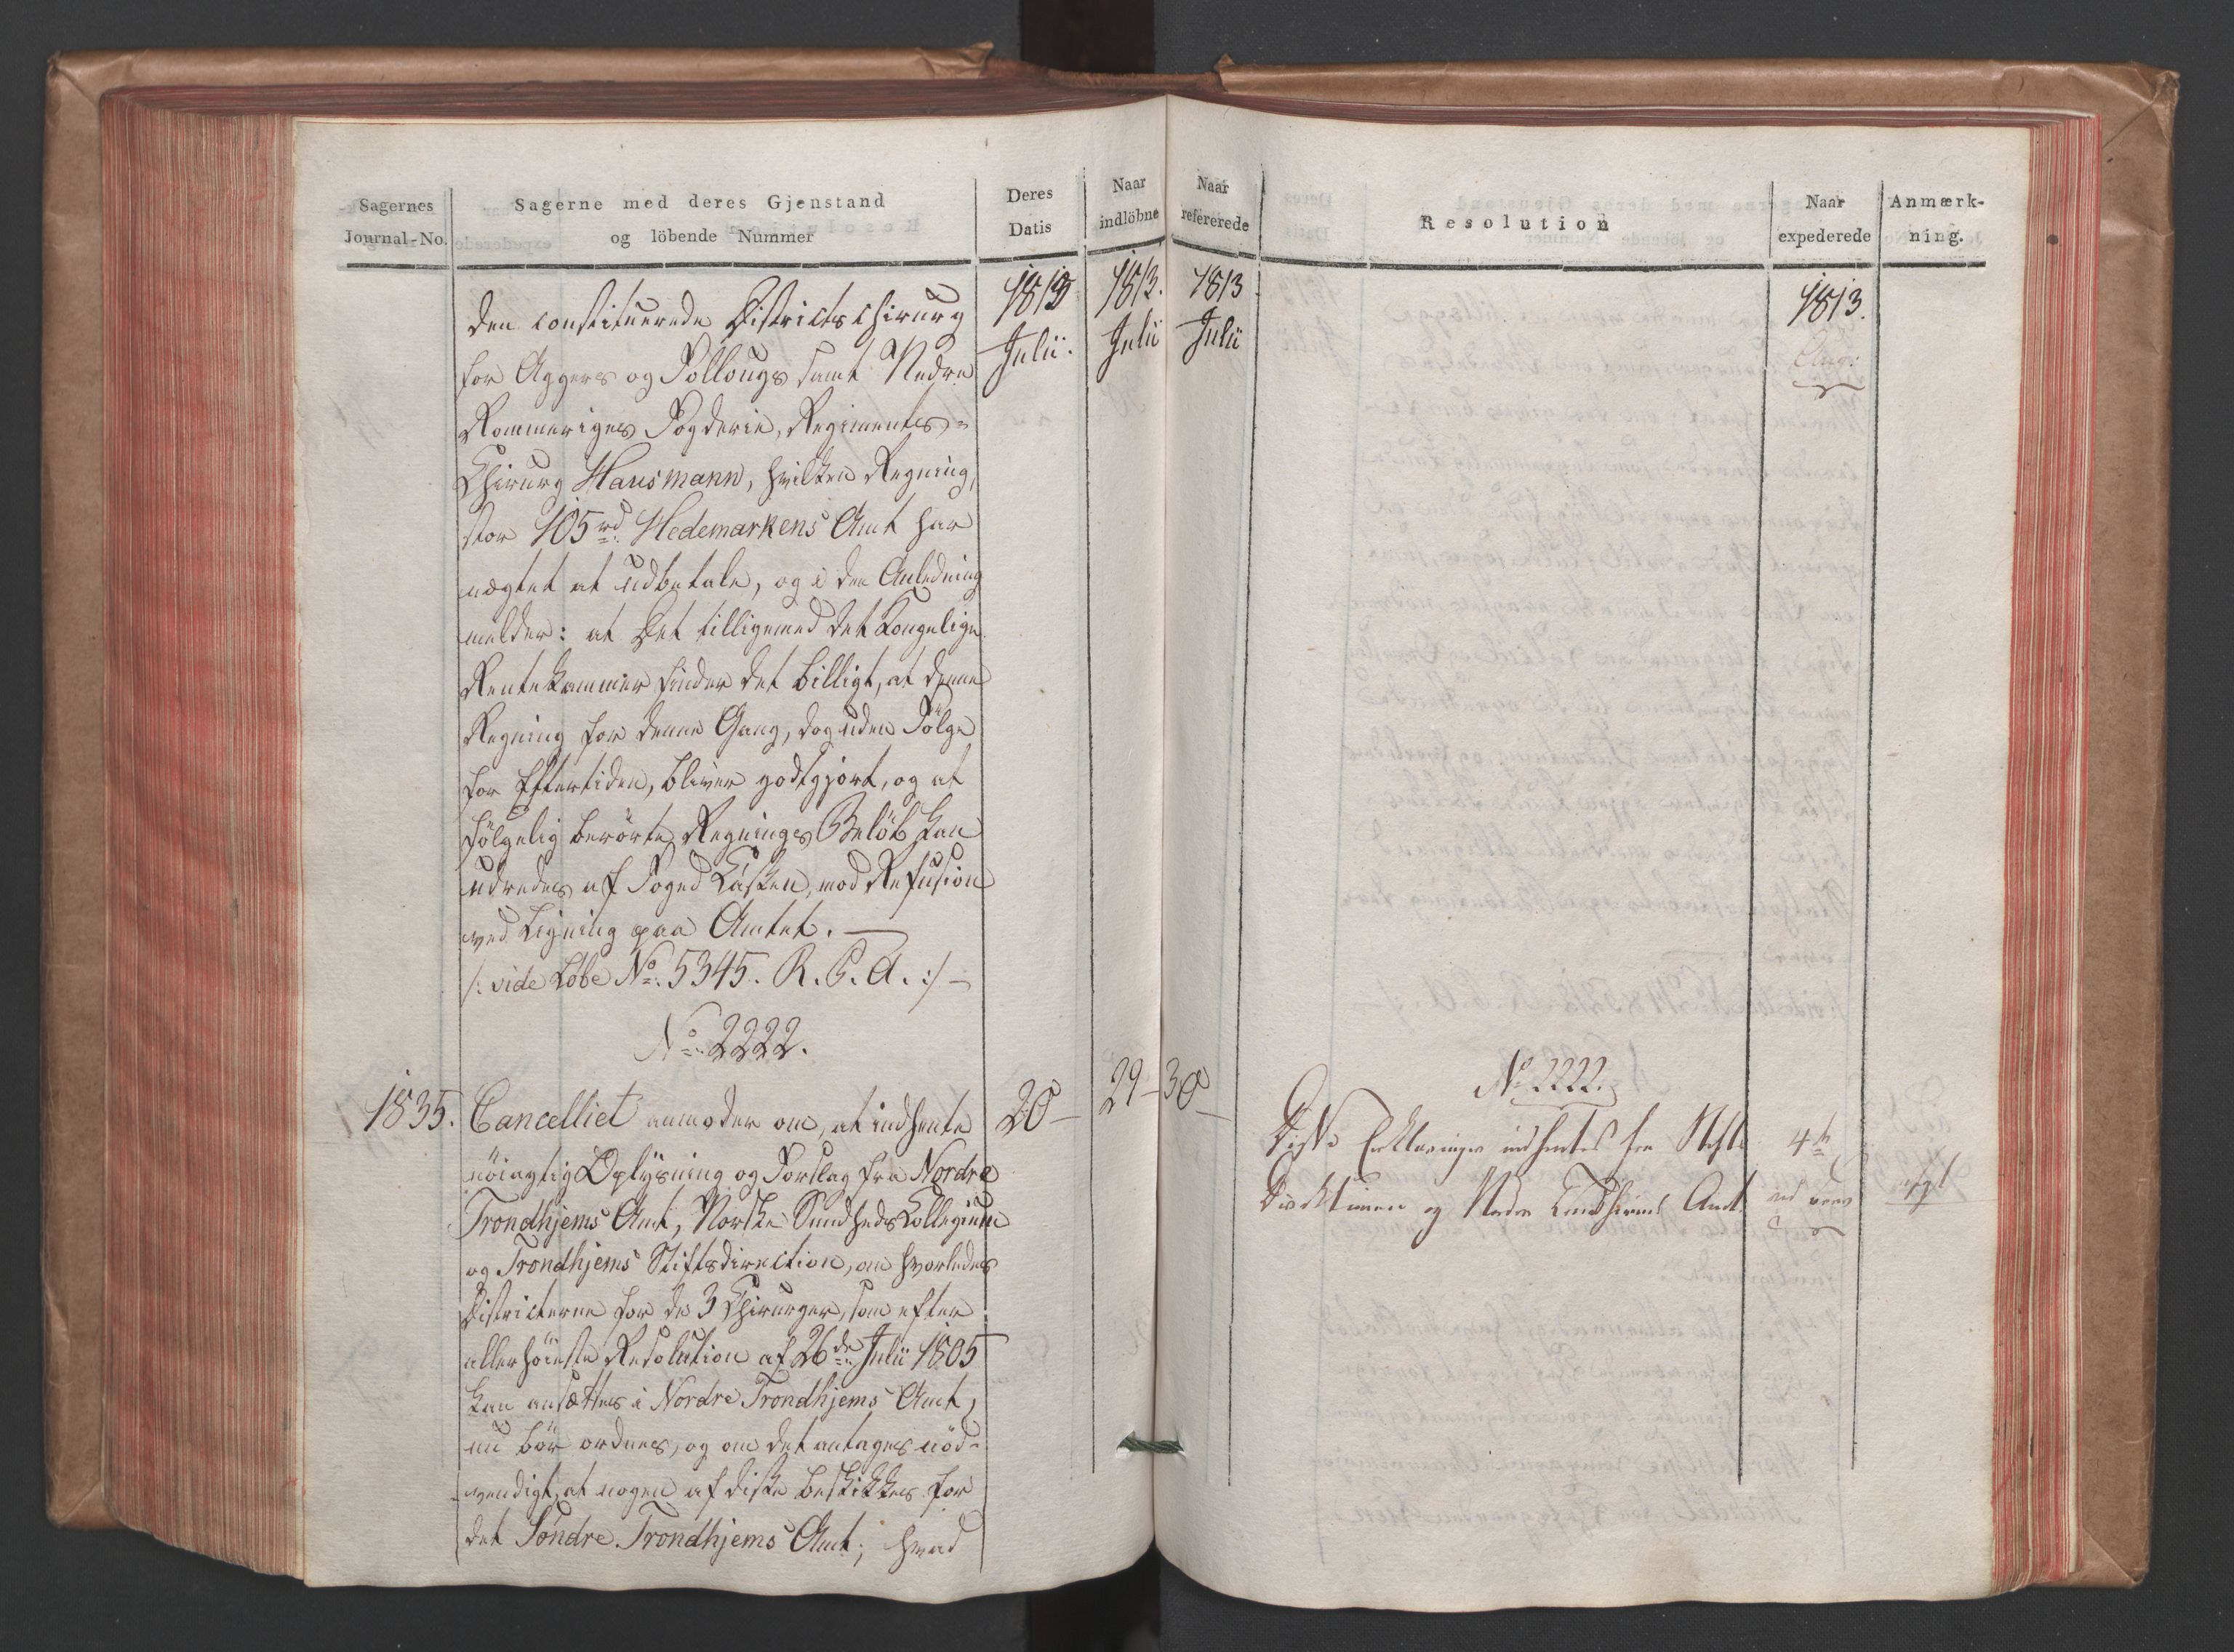 Sagernes
Journal-No.
Sagerne med deres Gjenstand
og löbende Nummer
Deres
Datis
Naar
indlöbne
1813
Julii.
1813.
Julii
den constituerede Districtschirurg
for Aggers og Follougs samt Nedre
Rommeriges Fogderie, Regiments-
Chirurg Hausmann, hvilken Regning,
stor 105 rd. Hedemarkens Amt har
nægtet at udbetale, og i den Anledning
melder: at Det tilligemed det Kongelige
Rentekammer finder det billigt, at denne
Regning for denne Gang, dog uden Fölge
for Eftertiden, bliver godtgjort, og at
fölgelig berörte Regnings Belöb kan
udredes af Foged Lasken, mod Refusion
ved Ligning paa Amtet. —
/: vide Löbe No. 5345. R. C. A. :/ —
No. 2222.
1835.
Cancelliet anmoder om, at indhente
nöiagtig Oplysning og Forslag fra Nordre
Trondhjems Amt, Norske Sundheds Collegium
og Trondhjems Stiftsdirection, om hvorledes
Districterne for de 3 Chirurger, som efter
allerhöieste Resolution af 26de Julii 1805
kan ansættes i Nordre Trondhjems Amt,
nu bör ordnes, og om det antages nöd-
vendigt, at nogen af disse beskikkes for
det Söndre Trondhjems Amt; hvad
20 —
29 —
Naar
refererede
Resolution
Naar
expederede
Anmærk-
ning.
1813
Julii
1813.
Aug:
30 —
No. 2222.
Disse Erklæringer indhentes fra Stifts
Direktionen og Nordre Trondhiems Amt.
4de